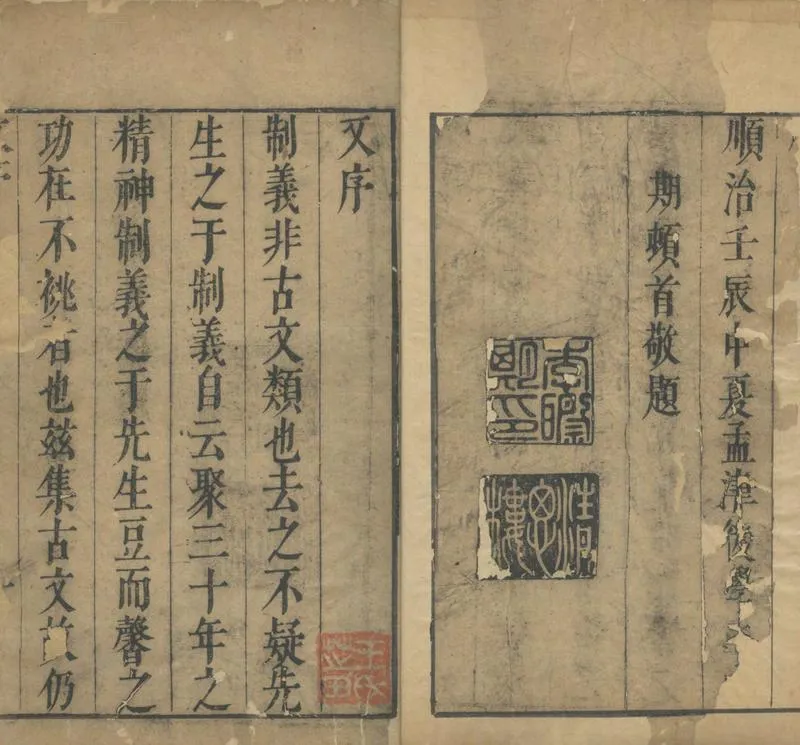 順治壬辰中夏孟津後學
期頓首敬題
李際期印
又序
制義非古文類也去之不疑先
生之于制義自云聚三十年之
精神制義之于先生豆而馨之
功在不祧者也茲集古文故仍
王氏